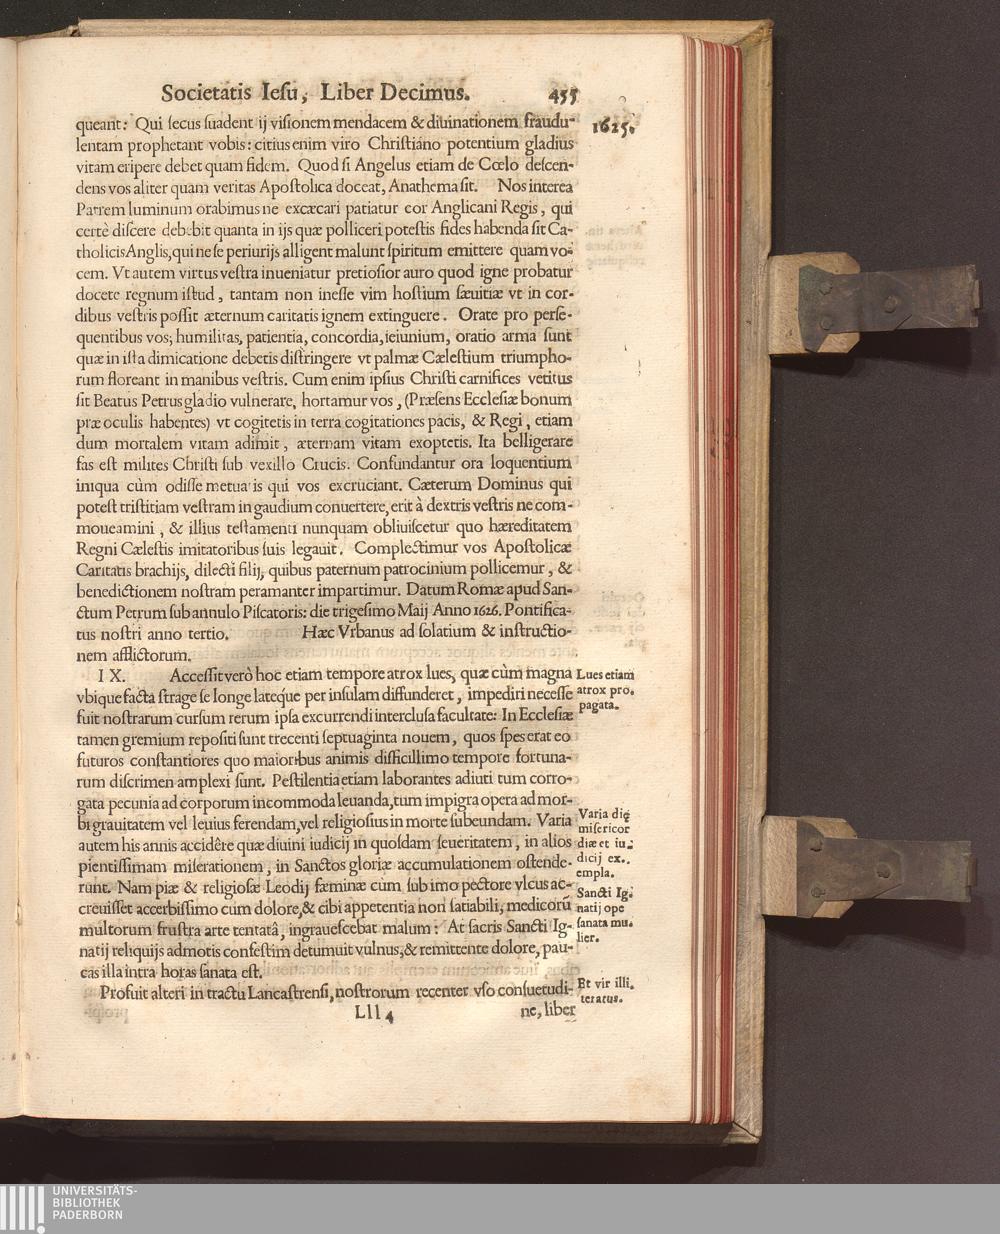 Societatis Ieſu, Liber Decimus. 455
1625.
queant: Qui ſecus ſuadent ij viſionem mendacem & diuinationem fraudu-
lentam prophetant vobis: citius enim viro Chriſtiano potentium gladius
vitam eripere debet quam fidem. Quod ſi Angelus etiam de Cœlo deſcen-
dens vos aliter quam veritas Apoſtolica doceat, Anathema ſit. Nos interea
Patrem luminum orabimus ne excæcari patiatur cor Anglicani Regis, qui
certè diſcere debebit quanta in ijs quæ polliceri poteſtis fides habenda ſit Ca-
tholicis Anglis, qui ne ſe periurijs alligent malunt ſpiritum emittere quam vo-
cem. Vt autem virtus veſtra inueniatur pretioſior auro quod igne probatur
docete regnum iſtud, tantam non ineſſe vim hoſtium ſæuitiæ vt in cor-
dibus veſtris poſſit æternum caritatis ignem extinguere. Orate pro perſe-
quentibus vos; humilitas, patientia, concordia, ieiunium, oratio arma ſunt
quæ in iſta dimicatione debetis diſtringere vt palmæ Cæleſtium triumpho-
rum floreant in manibus veſtris. Cum enim ipſius Chriſti carnifices vetitus
ſit Beatus Petrus gladio vulnerare, hortamur vos, (Præſens Eccleſiæ bonum
præ oculis habentes) vt cogitetis in terra cogitationes pacis, & Regi, etiam
dum mortalem vitam adimit, æternam vitam exoptetis. Ita belligerare
fas eſt milites Chriſti ſub vexillo Crucis. Confundantur ora loquentium
iniqua cùm odiſſe metuatis qui vos excruciant. Cæterum Dominus qui
poteſt triſtitiam veſtram in gaudium conuertere, erit à dextris veſtris ne com-
moueamini, & illius teſtamenti nunquam obliuiſcetur quo hæreditatem
Regni Cæleſtis imitatoribus ſuis legauit. Complectimur vos Apoſtolicæ
Caritatis brachijs, dilecti filij, quibus paternum patrocinium pollicemur, &
benedictionem noſtram peramanter impartimur. Datum Romæ apud San-
ctum Petrum ſub annulo Piſcatoris: die trigeſimo Maij Anno 1626. Pontifica-
tus noſtri anno tertio. Hæc Vrbanus ad ſolatium & inſtructio-
nem afflictorum.
IX. Acceſſit verò hoc etiam tempore atrox lues, quæ cùm magna
vbique facta ſtrage ſe longe lateq́ue per inſulam diffunderet, impediri neceſſe
fuit noſtrarum curſum rerum ipſa excurrendi intercluſa facultate: In Eccleſiæ
tamen gremium repoſiti ſunt trecenti ſeptuaginta nouem, quos ſpes erat eo
futuros conſtantiores quo maioribus animis difficillimo tempore fortuna-
rum diſcrimen amplexi ſunt. Peſtilentia etiam laborantes adiuti tum corro-
gata pecunia ad corporum incommoda leuanda, tum impigra opera ad mor-
bi grauitatem vel leuius ferendam, vel religioſius in morte ſubeundam. Varia
autem his annis accidêre quæ diuini iudicij in quoſdam ſeueritatem, in alios
pientiſſimam miſerationem, in Sanctos gloriæ accumulationem oſtende-
runt. Nam piæ & religioſæ Leodij fæminæ cùm ſub imo pectore vlcus ac-
creuiſſet accerbiſſimo cum dolore, & cibi appetentia non ſatiabili, medicorũ
multorum fruſtra arte tentatâ, ingraueſcebat malum: At ſacris Sancti Ig-
natij reliquijs admotis confeſtim detumuit vulnus, & remittente dolore, pau-
cas illa intra horas ſanata eſt.
Profuit alteri in tractu Lancaſtrenſi, noſtrorum recenter vſo conſuetudi-
Lll 4 ne, liber
Lues etiam
atrox pro-
pagata.
Varia diẹ
miſericor
diæ et iu-
dicij ex-
empla.
Sancti Ig-
natij ope
ſanata mu-
lier.
Et vir illi-
teratus.
UNIVERSITÄTS-
BIBLIOTHEK
PADERBORN